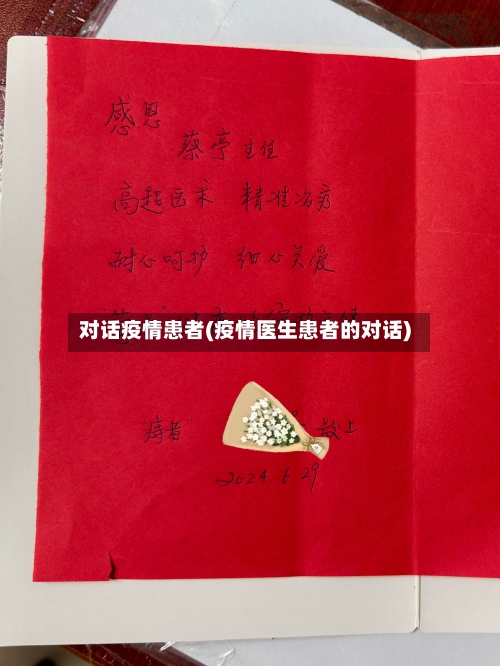 感恩
蔡亭主任
高超医术 精准治疗
耐心呵护 细心关爱
对话疫情患者(疫情医生患者的对话)
患者 敬上
2024.6.29